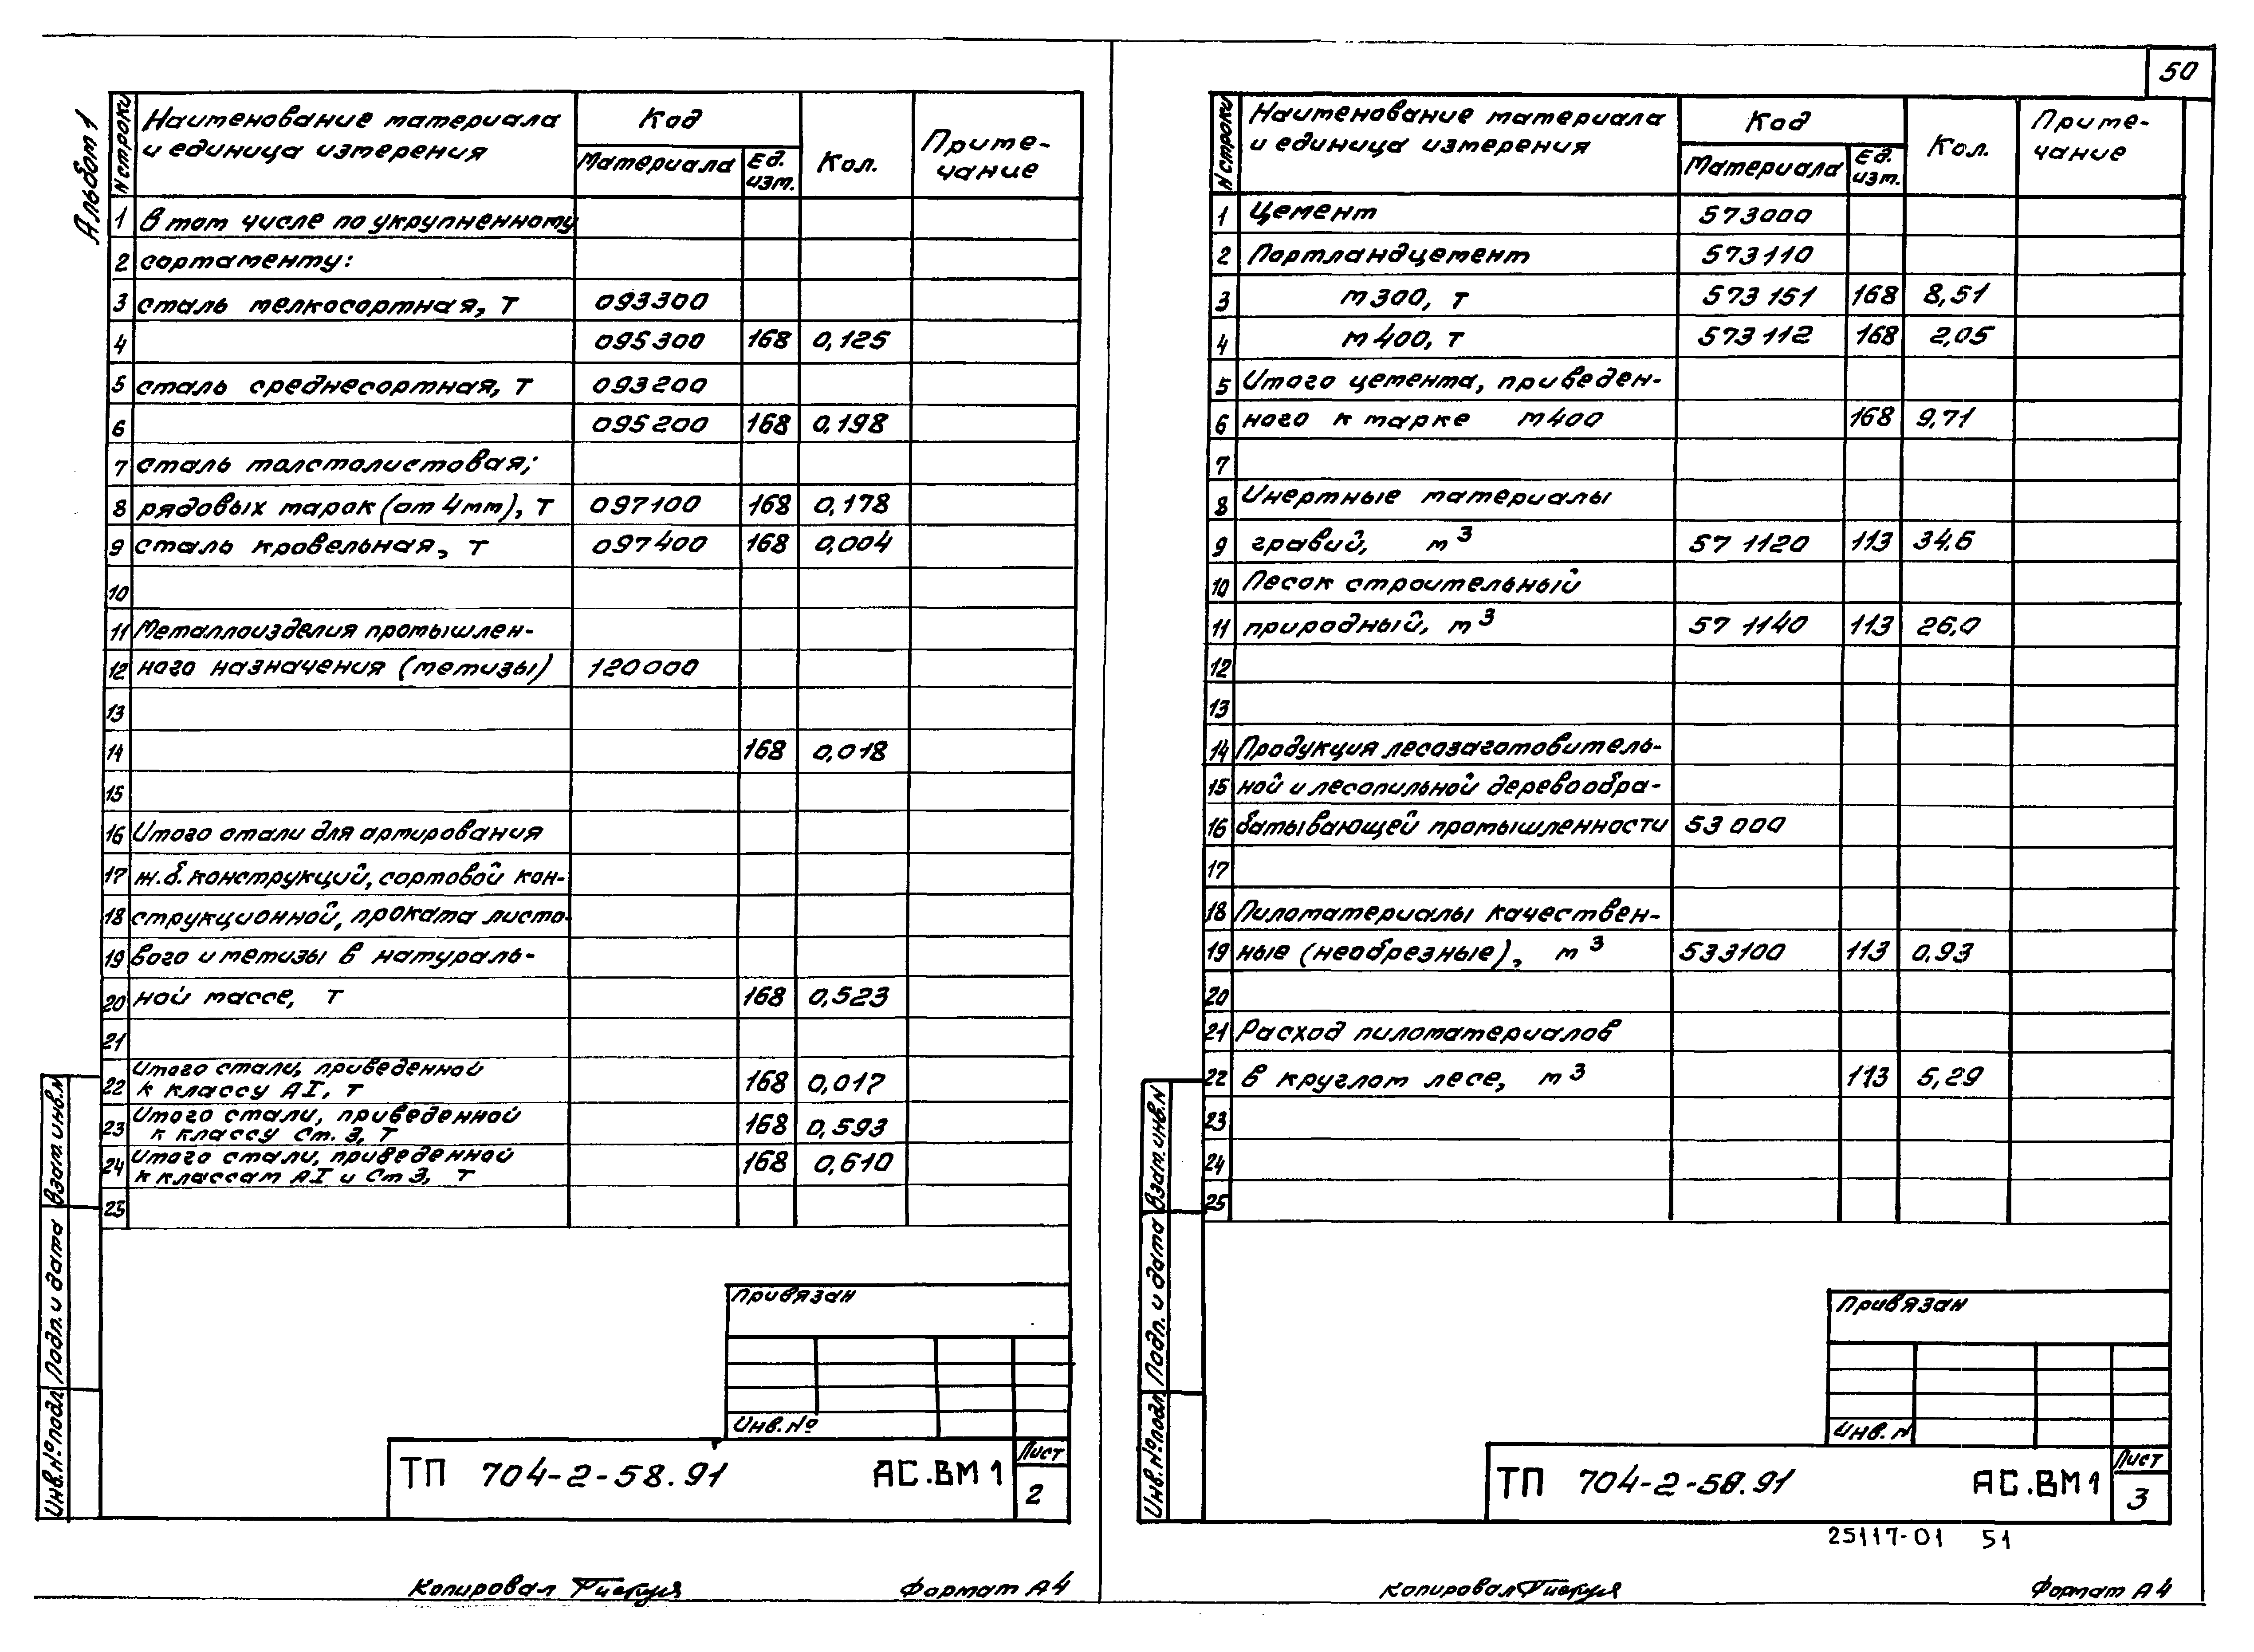 50
Альбом 1
N строки
Наименование материала
и единица измерения
Код
Материала
Ед.
изм.
Кол.
Приме-
чание
1 В том числе по укрупненному
2 сортаменту:
3 сталь мелкосортная, т 093300
4 095300 168 0,125
5 сталь среднесортная, т 093200
6 095200 168 0,198
7 сталь толстолистовая;
8 рядовых марок (от 4мм), т 097100 168 0,178
9 сталь кровельная, т 097400 168 0,004
10
11 Металлоизделия промышлен-
12 ного назначения (метизы) 120000
13
14 168 0,018
15
16 Итого стали для армирования
17 ж.б. конструкций, сортовой кон-
18 струкционной, проката листо-
19 вого и метизы в натураль-
20 ной массе, т 168 0,523
21
22 Итого стали, приведенной
к классу АI, т 168 0,017
23 Итого стали, приведенной
к классу Ст. 3, т 168 0,593
24 Итого стали, приведенной
к классам АI и Ст 3, т 168 0,610
25
Привязан
Инв. №
ТП 704-2-58.91 АС.ВМ1
Лист
2
Инв. № подл. Подп. и дата Взам. инв. N
Копировал
Формат А4
N строки
Наименование материала
и единица измерения
Код
Материала
Ед.
изм.
Кол.
Приме-
чание
1 Цемент 573000
2 Портландцемент 573110
3 м300, т 573 151 168 8,51
4 м400, т 573 112 168 2,05
5 Итого цемента, приведен-
6 ного к марке м400 168 9,71
7
8 Инертные материалы
9 гравий, м³ 57 1120 113 34,6
10 Песок строительный
11 природный, м³ 57 1140 113 26,0
12
13
14 Продукция лесозаготовитель-
15 ной и лесопильной деревообра-
16 батывающей промышленности 53 000
17
18 Пиломатериалы качествен-
19 ные (необрезные), м³ 533100 113 0,93
20
21 Расход пиломатериалов
22 в круглом лесе, м³ 113 5,29
23
24
25
Привязан
Инв. N
ТП 704-2-58.91 АС.ВМ1
Лист
3
Инв. № подл. Подп. и дата Взам. инв. N
25117-01 51
Копировал
Формат А4